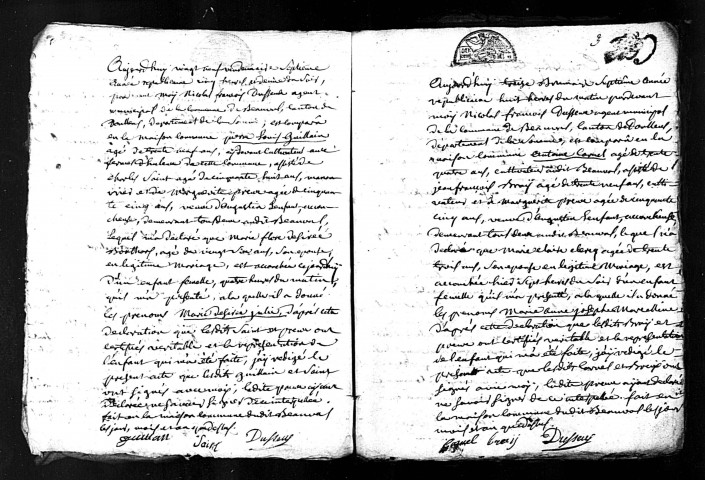 Aujourdhuy vingt neuf vendemiaire Septième
année republicaine cinq heures et demie du soir,
pardevant moy Nicolas francois Dusseux agent
municipal de la commune de Beauval, canton de
Doullens, departement de la Somme; est comparu
en la maison commune pierre Louis Guillain
agé de trente neuf ans,
de cette commune, assisté de
charles Saint agé de cinquante huit ans, manou
vrier et de Marguerite preux agée de cinquan
te cinq ans, veuve d'augustin Lenfant, accou
cheuse, demeurant tous deux audit Beauval,
lequel m'a déclaré que Marie flore desirée
agée de vingt six ans, son epouse
en legitime Mariage, est accouchée
d'un enfant femelle, quatre heures du matin,
qu'il m'a présenté, a laquelle il a donné
les prenoms Marie desirée julie, d'apres cette
declaration que lesdits Saint et preux ont
certifiés veritable et la representation de
l'enfant qui m'a été faite, j'ay redigé le
present acte que lesdits guillain et Saint
ont signés avec moy, ladite preux ayant
declaré ne savoir signer de ce interpellée.
fait en la maison commune dudit Beauval
les jour, mois et an que dessus.
guillain Saint Dusseux
3
Aujourdhuy treize Brumaire Septième année
republicaine huit heures du matin pardevant
moy Nicolas francois Dusseux agent municipal
de la commune de Beauval, canton de Doullens,
département de la Somme, est comparu en la
maison commune antoine Cornel agé de trente
quatre ans, cultivateur audit Beauval, assisté de
jean francois Broiy agé de trente neuf ans, culti
vateur et de Marguerite preux agée de cinquante
cinq ans, veuve d'augustin Lenfant, accoucheuse
demeurant tous deux audit Beauval, lequel m'a
declaré que Marie agée de trente
trois ans, son epouse en legitime Mariage, est
accouchée hier Sept heures du soir d'un enfant
femelle qu'il m'a presenté, a laquelle il a donné
les prenoms Marie anne josephe Marcelline
d'apres cette declaration que lesdits Broiy et
preux ont certifiés veritable et la representation
de l'enfant qui m'a été faite, j'ay redigé le
present acte que lesdits Cornel et Broiy ont
signés avec moy, ladite preux ayant declaré
ne savoir signer de ce interpellée fait en
la maison commune dudit Beauval les jour
mois et an que dessus.
Cornel broiy Dusseux